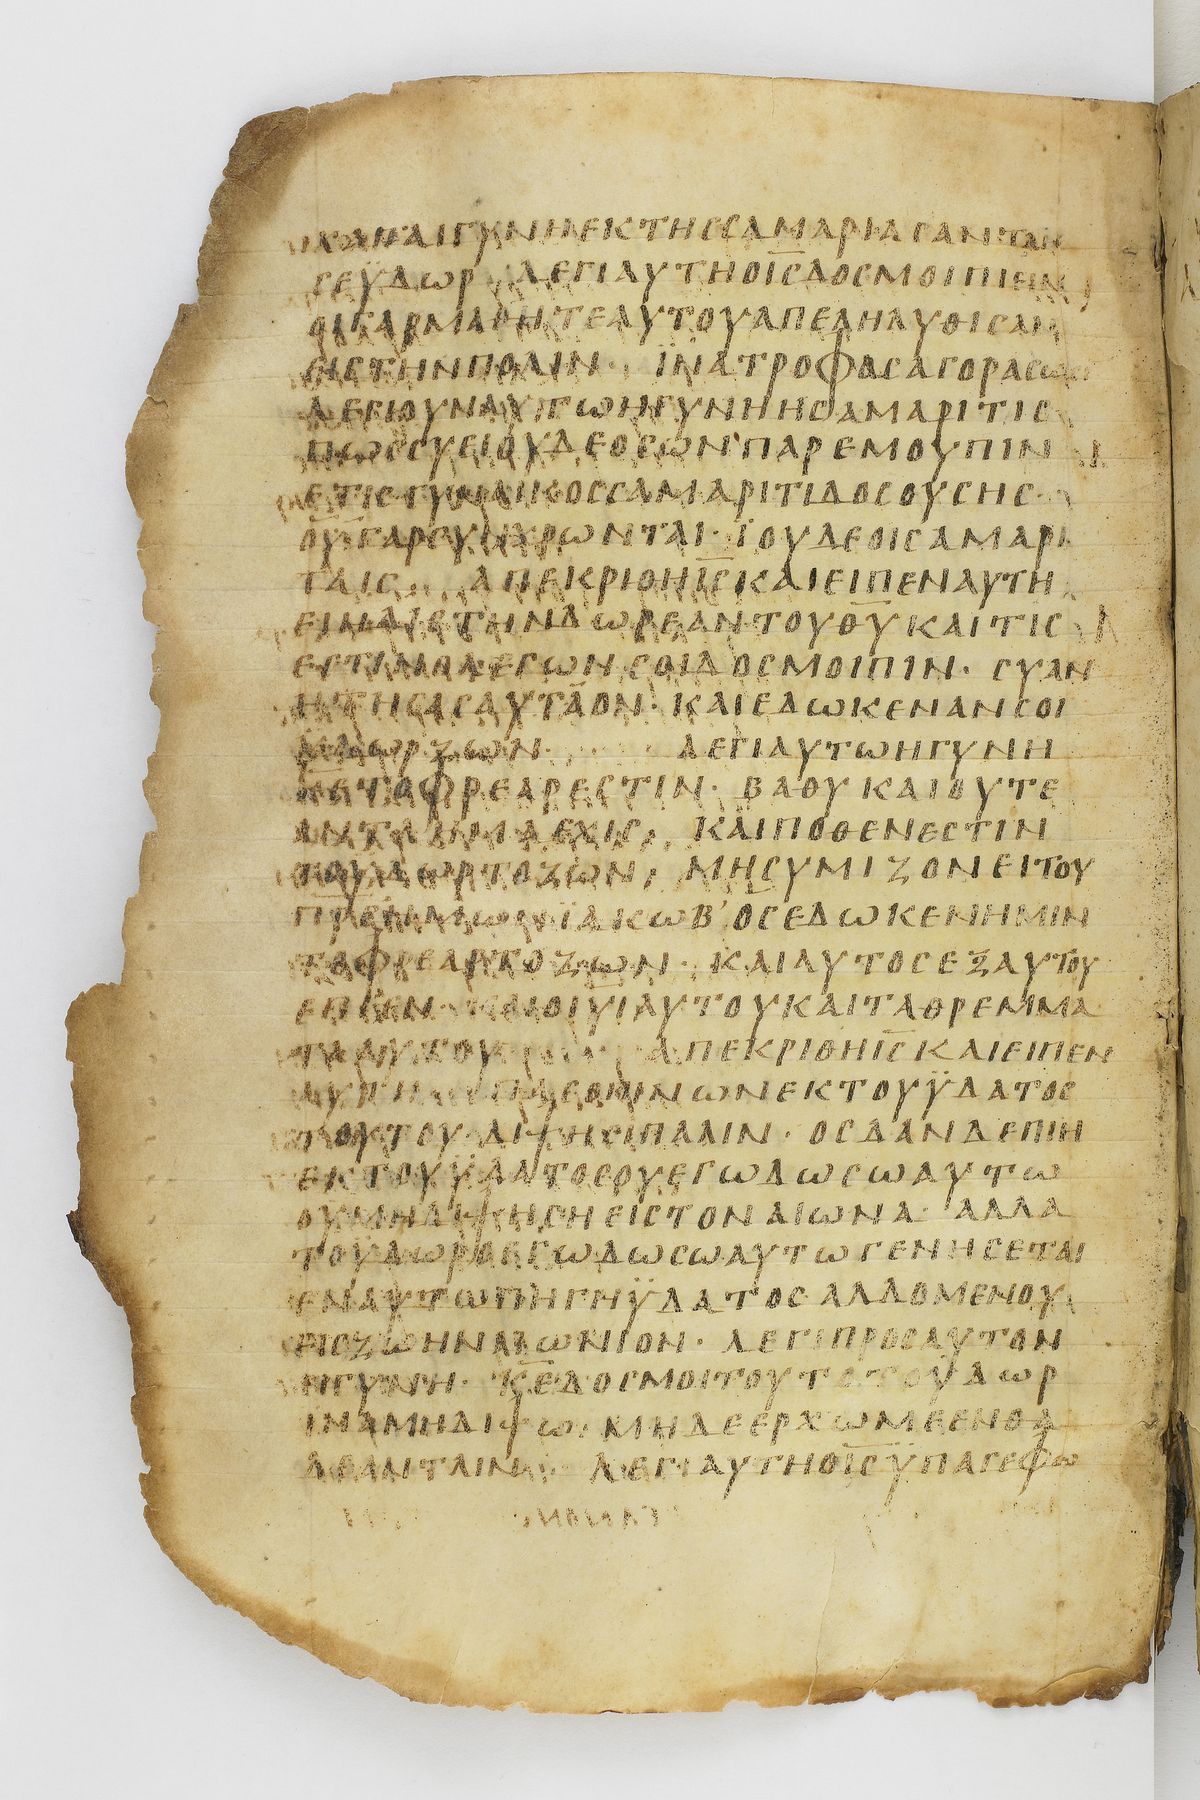 ΚΑΙΓΥΝΗΕΚΤΗССΑΜΑΡΙΑСΑΝΤΛΗ
СΕΫΔΩΡ ΛΕΓΙΑΥΤΗΟΙ̅С̅ΔΟСΜΟΙΠΙΕΙΝ
ΟΙΓΑΡΜΑΘΗΤΕΑΥΤΟΥΑΠΕΛΗΛΥΘΙСΑΝ
ΕΙСΤΗΝΠΟΛΙΝ · ΪΝΑΤΡΟΦΑСΑΓΟΡΑСΩСΙ
ΛΕΓΙΟΥΝΑΥΤΩΗΓΥΝΗΗСΑΜΑΡΙΤΙС
ΠΩССΥΕΙΟΥΔΕΟСΩΝΠΑΡΕΜΟΥΠΙΝ
ΕΤΙСΓΥΝΑΙΚΟССΑΜΑΡΙΤΙΔΟСΟΥСΗС
ΟΥΓΑΡСΥΝΧΡΩΝΤΑΙ · ΪΟΥΔΕΟΙСΑΜΑΡΙ
ΤΑΙС · ΑΠΕΚΡΙΘΗΙ̅С̅ΚΑΙΕΙΠΕΝΑΥΤΗ
ΕΙΗΔΙСΤΗΝΔΩΡΕΑΝΤΟΥΘ̅Υ̅ΚΑΙΤΙС
ΕСΤΙΝΟΛΕΓΩΝСΟΙΔΟСΜΟΙΠΙΝ · СΥΑΝ
ΗΤΗСΑСΑΥΤΑΟΝ · ΚΑΙΕΔΩΚΕΝΑΝСΟΙ
ΫΔΩΡΖΩΝ · ΛΕΓΙΑΥΤΩΗΓΥΝΗ
Κ̅Ε̅ΤΟΦΡΕΑΡΕСΤΙΝ · ΒΑΘΥΚΑΙΟΥΤΕ
ΑΝΤΛΗΜΑΕΧΙС, ΚΑΙΠΟΘΕΝΕСΤΙΝ
ΤΟΫΔΩΡΤΟΖΩΝ, ΜΗСΥΜΙΖΟΝΕΙΤΟΥ
Π̅Ρ̅С̅ΗΜΩΝΪΑΚΩΒ’ΟСΕΔΩΚΕΝΗΜΙΝ
ΤΟΦΡΕΑΡΤΟΖΩΝ · ΚΑΙΑΥΤΟСΕΞΑΥΤΟΥ
ΕΠΙΕΝ · ΚΑΙΟΙΥΙΑΥΤΟΥΚΑΙΤΑΘΡΕΜΜΑ
ΤΑΑΥΤΟΥ · ΑΠΕΚΡΙΘΗΙ̅С̅ΚΑΙΕΙΠΕΝ
ΑΥΤΗ ΠΑСΟΠΙΝΩΝΕΚΤΟΥΫΔΑΤΟС
ΤΟΥΤΟΥΔΙΨΗСΙΠΑΛΙΝ · ΟСΔΑΝΔΕΠΙΗ
ΕΚΤΟΥΫΔΑΤΟСΟΥΕΓΩΔΩСΩΑΥΤΩ
ΟΥΜΗΔΙΨΗСΗΕΙСΤΟΝΑΙΩΝΑ · ΑΛΛΑ
ΤΟΫΔΩΡΟΕΓΩΔΩСΩΑΥΤΩΓΕΝΗСΕΤΑΙ
ΕΝΑΥΤΩΠΗΓΗΫΔΑΤΟСΑΛΛΟΜΕΝΟΥ
ΕΙСΖΩΗΝΑΙΩΝΙΟΝ · ΛΕΓΙΠΡΟСΑΥΤΟΝ
ΗΓΥΝΗ · Κ̅Ε̅ΔΟСΜΟΙΤΟΥΤΟΤΟΫΔΩΡ
ΙΝΑΜΗΔΙΨΩ, ΜΗΔΕΕΡΧΩΜΕΕΝΘΑ
ΔΕΑΝΤΛΙΝ · ΛΕΓΙΑΥΤΗΟΙ̅С̅ΫΠΑΓΕΦΩ